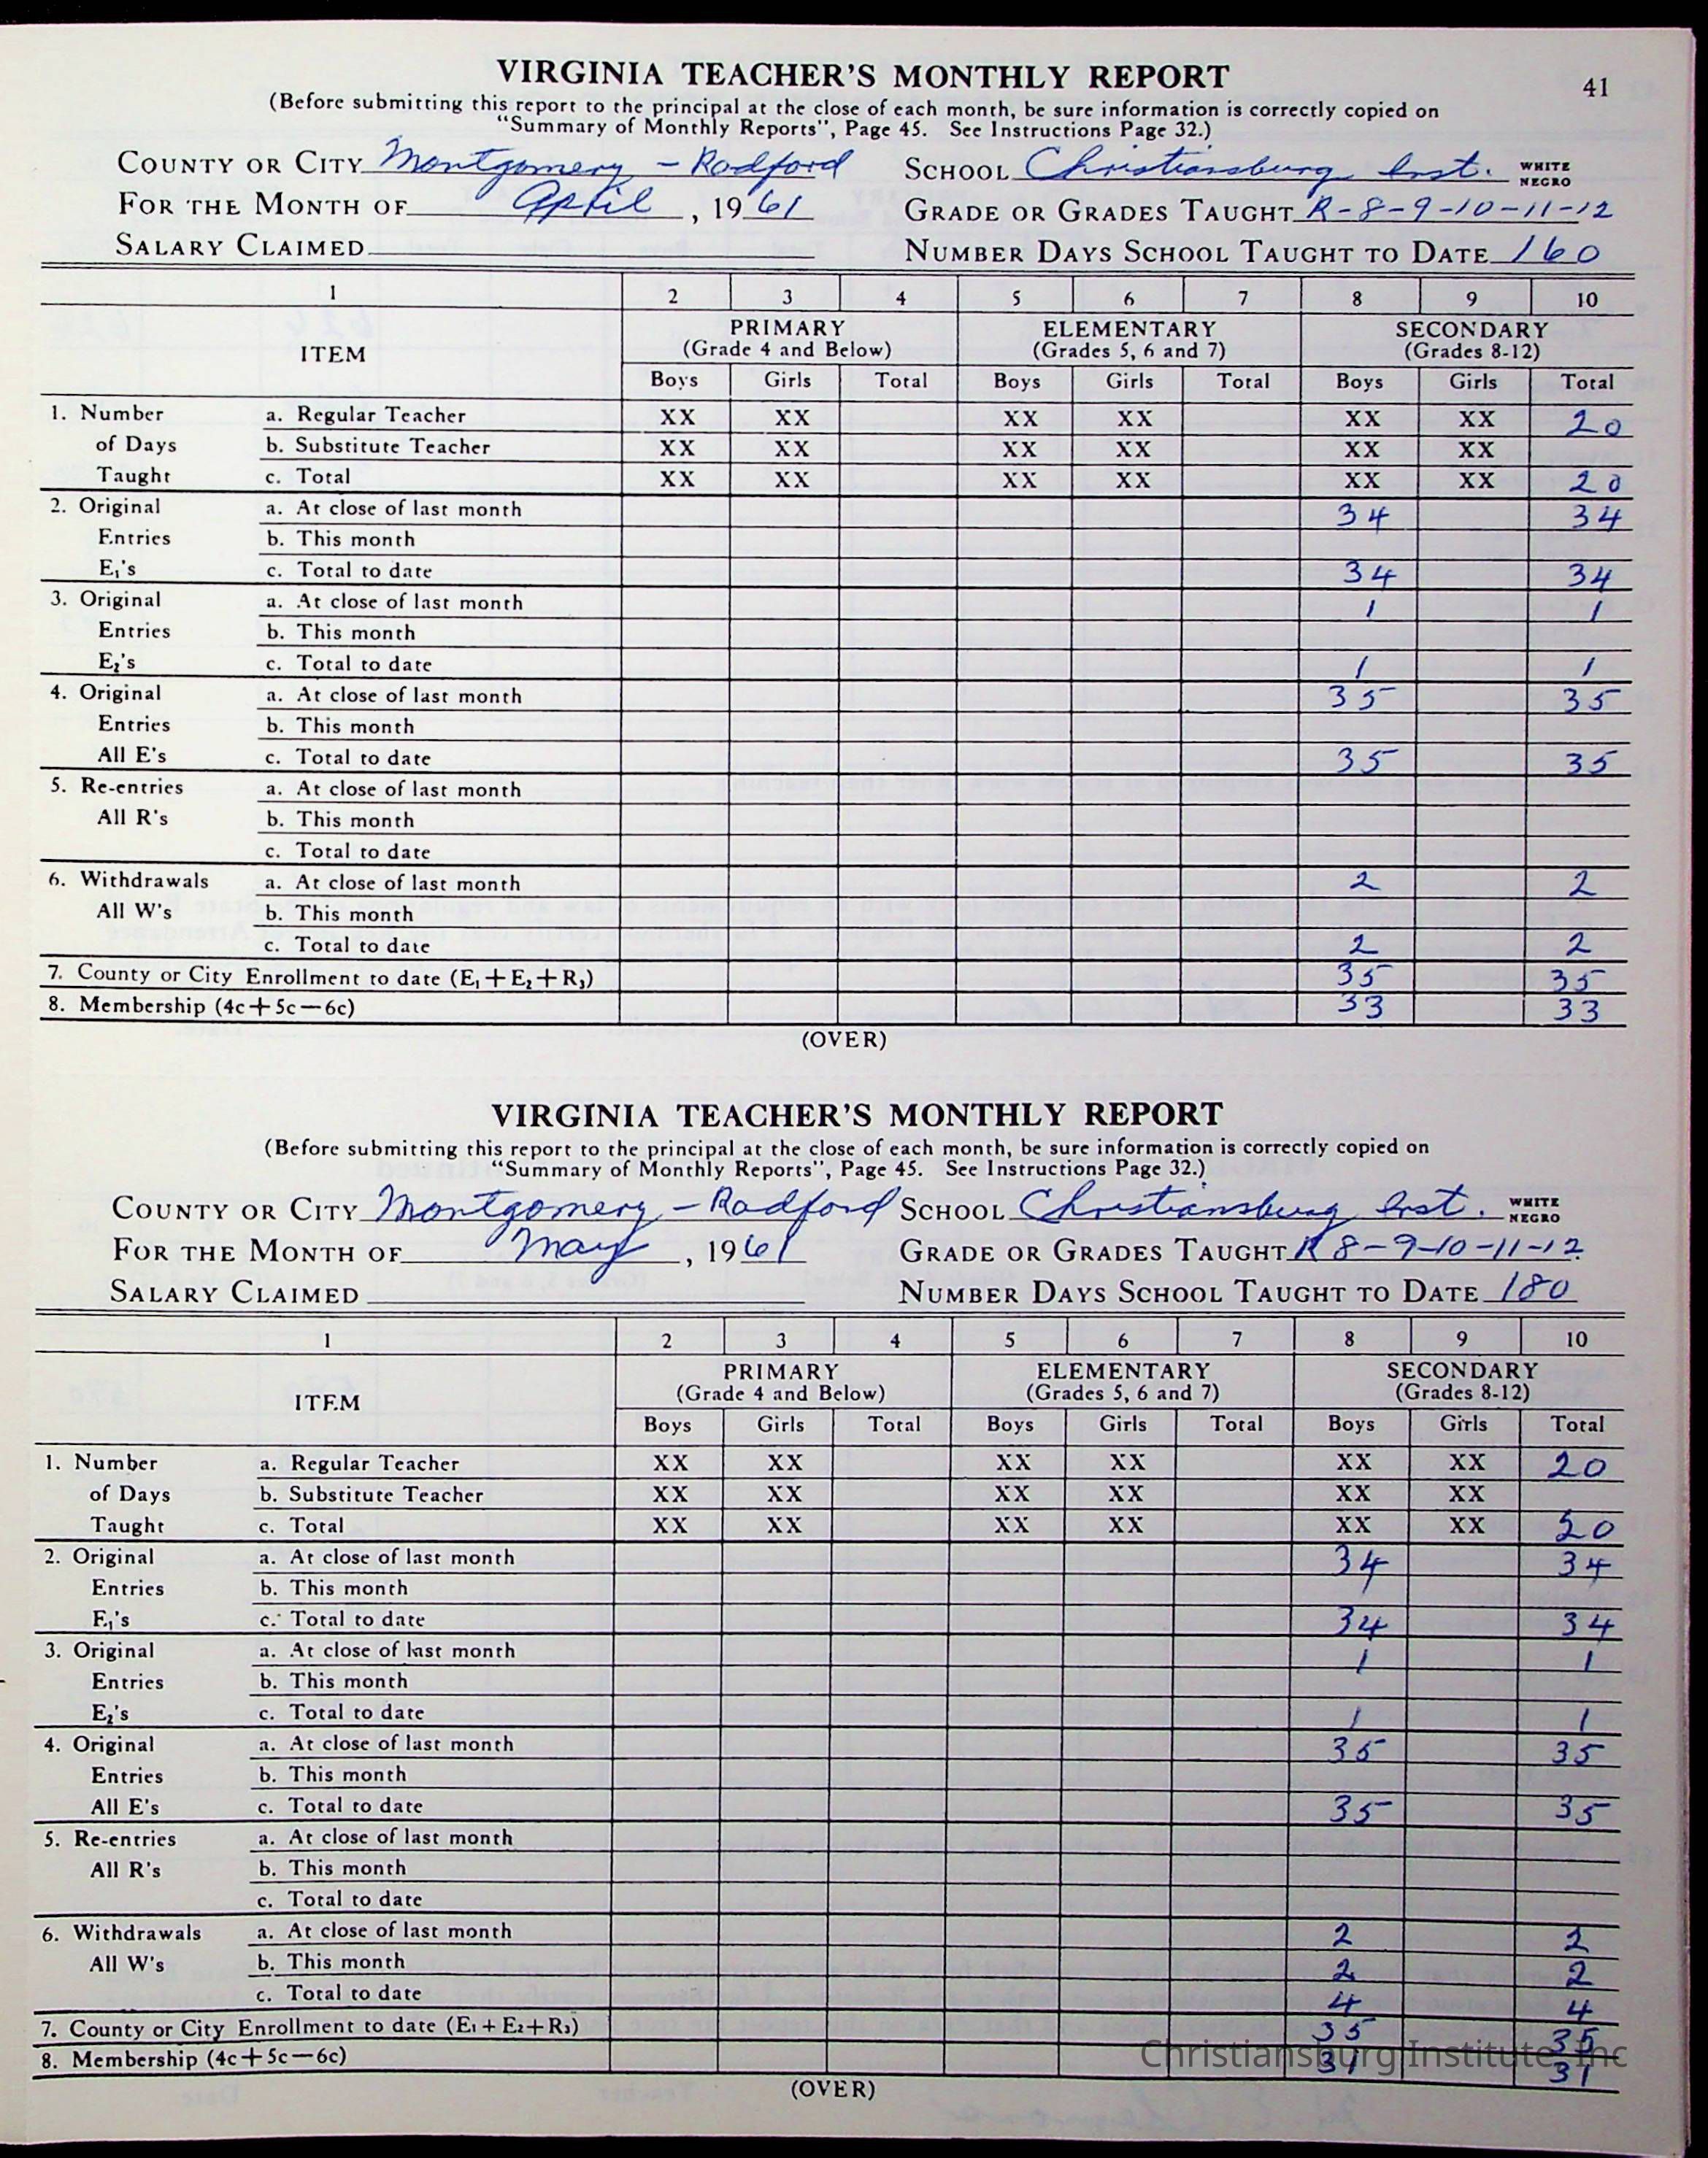 VIRGINIA TEACHER'S MONTHLY REPORT
41
(Before submitting this report to the principal at the close of each month, be sure information is correctly copied on
"Summary of Monthly Reports", Page 45. See Instructions Page 32.)
COUNTY OR CITY Montgomery - Radford SCHOOL Christiansburg Inst. WHITE NEGRO
FOR THE MONTH OF April, 1961 GRADE OR GRADES TAUGHT R-8-9-10-11-12
SALARY CLAIMED NUMBER DAYS SCHOOL TAUGHT TO DATE 160
1 2 3 4 5 6 7 8 9 10
ITEM PRIMARY (Grade 4 and Below) ELEMENTARY (Grades 5, 6 and 7) SECONDARY (Grades 8-12)
Boys Girls Total Boys Girls Total Boys Girls Total
1. Number a. Regular Teacher XX XX XX XX XX XX 20
of Days b. Substitute Teacher XX XX XX XX XX XX
Taught c. Total XX XX XX XX XX XX 20
2. Original a. At close of last month 34 34
Entries b. This month
E1's c. Total to date 34 34
3. Original a. At close of last month 1 1
Entries b. This month
E2's c. Total to date 1 1
4. Original a. At close of last month 35 35
Entries b. This month
All E's c. Total to date 35 35
5. Re-entries a. At close of last month
All R's b. This month
c. Total to date
6. Withdrawals a. At close of last month 2 2
All W's b. This month
c. Total to date 2 2
7. County or City Enrollment to date (E1+E2+R3) 35 35
8. Membership (4c+5c—6c) 33 33
(OVER)
VIRGINIA TEACHER'S MONTHLY REPORT
(Before submitting this report to the principal at the close of each month, be sure information is correctly copied on
"Summary of Monthly Reports", Page 45. See Instructions Page 32.)
COUNTY OR CITY Montgomery - Radford SCHOOL Christiansburg Inst. WHITE NEGRO
FOR THE MONTH OF May, 1961 GRADE OR GRADES TAUGHT R 8-9-10-11-12
SALARY CLAIMED NUMBER DAYS SCHOOL TAUGHT TO DATE 180
1 2 3 4 5 6 7 8 9 10
ITEM PRIMARY (Grade 4 and Below) ELEMENTARY (Grades 5, 6 and 7) SECONDARY (Grades 8-12)
Boys Girls Total Boys Girls Total Boys Girls Total
1. Number a. Regular Teacher XX XX XX XX XX XX 20
of Days b. Substitute Teacher XX XX XX XX XX XX
Taught c. Total XX XX XX XX XX XX 20
2. Original a. At close of last month 34 34
Entries b. This month
E1's c. Total to date 34 34
3. Original a. At close of last month 1 1
Entries b. This month
E2's c. Total to date 1 1
4. Original a. At close of last month 35 35
Entries b. This month
All E's c. Total to date 35 35
5. Re-entries a. At close of last month
All R's b. This month
c. Total to date
6. Withdrawals a. At close of last month 2 2
All W's b. This month 2 2
c. Total to date 4 4
7. County or City Enrollment to date (E1+E2+R3) 35 35
8. Membership (4c+5c—6c) 31 31
Christiansburg Institute, Inc
(OVER)